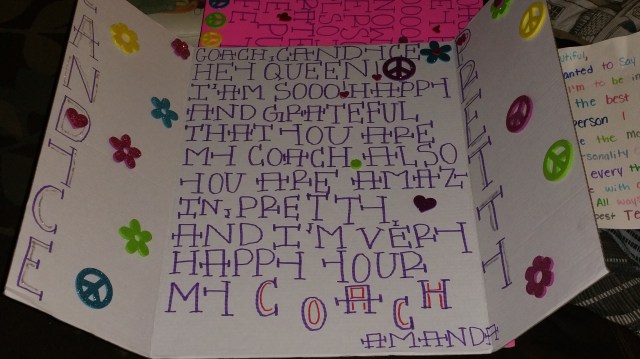 CANDICE
COACH, CANDICE
HEY QUEEN!
I'AM SOOO HAPPY
AND GRATEFUL
THAT YOU ARE
MY COACH. ALSO
YOU ARE AMAZ
IN, PRETTY,
AND I'M VERY
HAPPY YOUR
MY COACH
AMANDA
PRETTY
to say
I'm to be
the best
person I
the
every
with
All